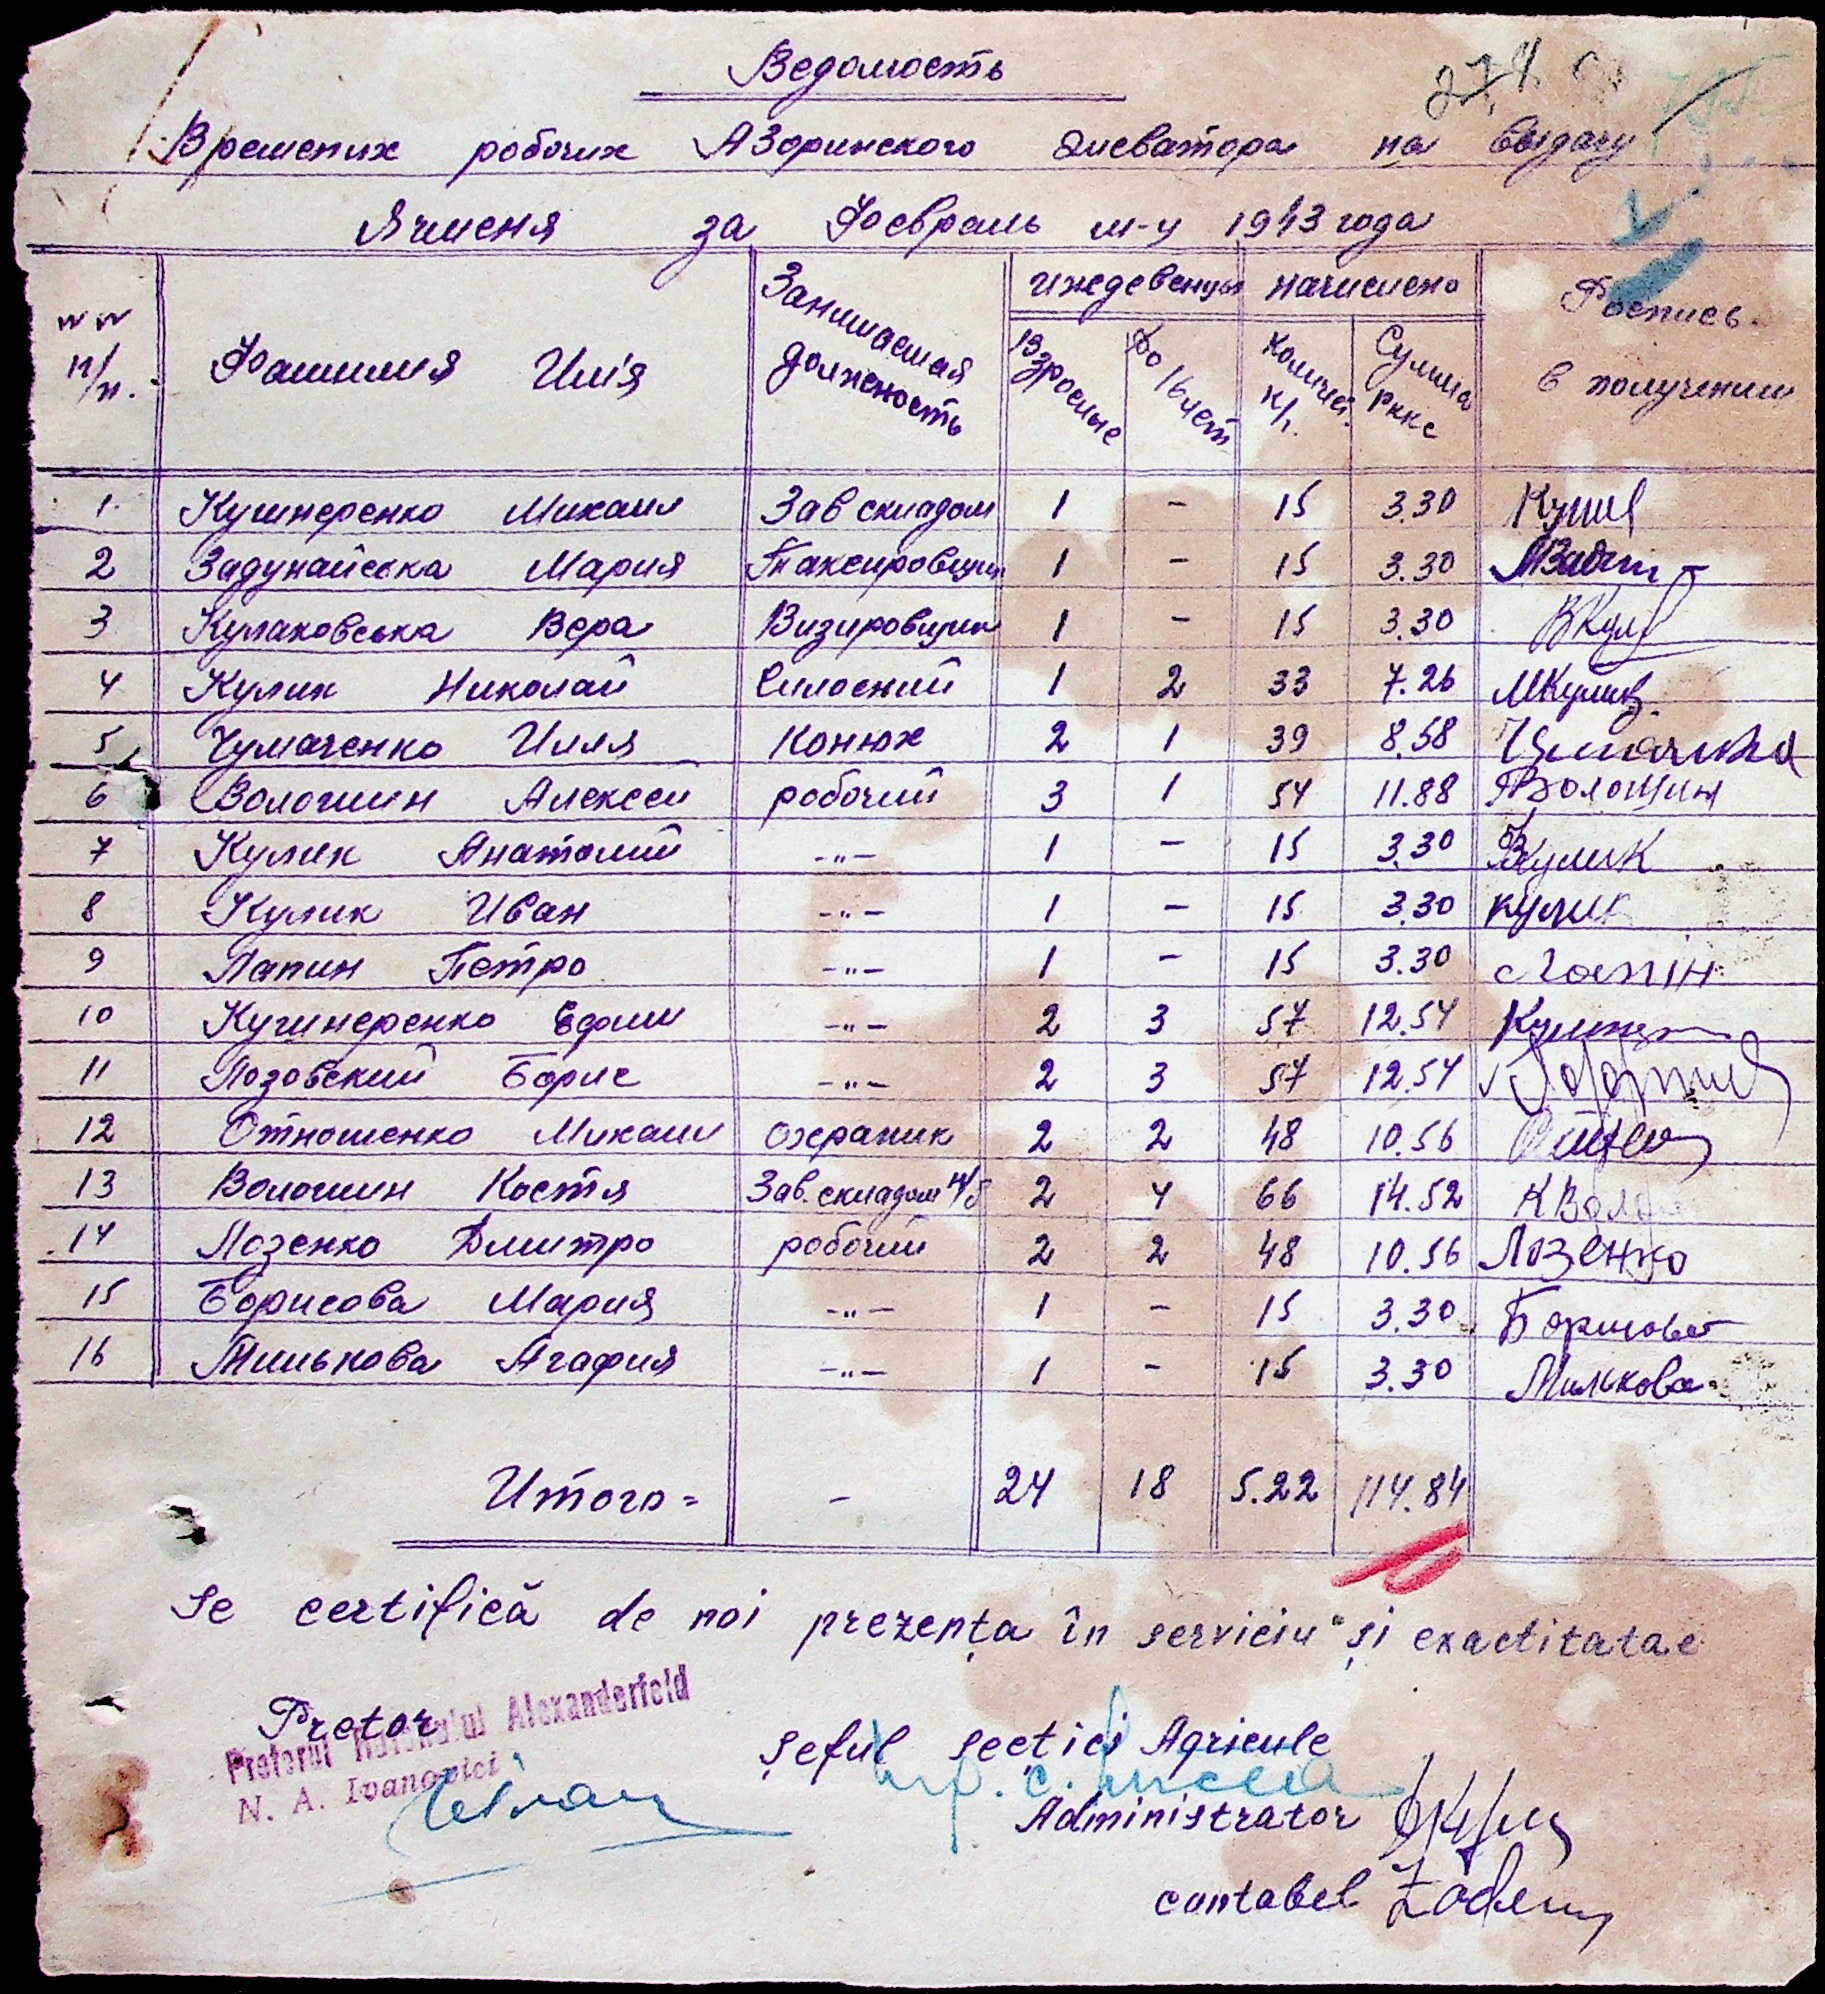 Ведомость
274
Времених робочих АЗоринского Элеватора на выдачу
Ячменя за Февраль м-ц 1943 года
NN п/п. Фамилия Имя Занимаемая должность ижедевенцы начислено Роспись в получении
Взрослые До 16 лет Количест. к/г. Сумма РККС
1. Кушнеренко Михаил Зав складом 1 - 15 3.30 Кушн
2 Задунайська Мария Таксировщик 1 - 15 3.30
3 Кулаковська Вера Визировщик 1 - 15 3.30 ВКул
4 Кулик Николай Силосний 1 2 33 7.26 МКулик
5 Чумаченко Илля Конюх 2 1 39 8.58
6 Волошин Алексей робочий 3 1 54 11.88 Волошин
7 Кулик Анатолий -"- 1 - 15 3.30 Кулик
8 Кулик Иван -"- 1 - 15 3.30 кулик
9 Лапин Петро -"- 1 - 15 3.30 Лапін
10 Кушнеренко Ефим -"- 2 3 57 12.54
11 Лозовский Борис -"- 2 3 57 12.54
12 Отношенко Михаил охраник 2 2 48 10.56
13 Волошин Костя Зав. складом н/б 2 4 66 14.52 К Воло
14 Лозенко Дмитро робочий 2 2 48 10.56 Лозенко
15 Борисова Мария -"- 1 - 15 3.30 Борисова
16 Милькова Агафия -"- 1 - 15 3.30 Милкова
Итого = - 24 18 5.22 114.84
Se certifică de noi prezența în serviciu și exactitatae
Pretor
Pretorul Raionului Alexanderfeld
N. A. Ivanovici
Șeful secției Agricole
Administrator
contabel